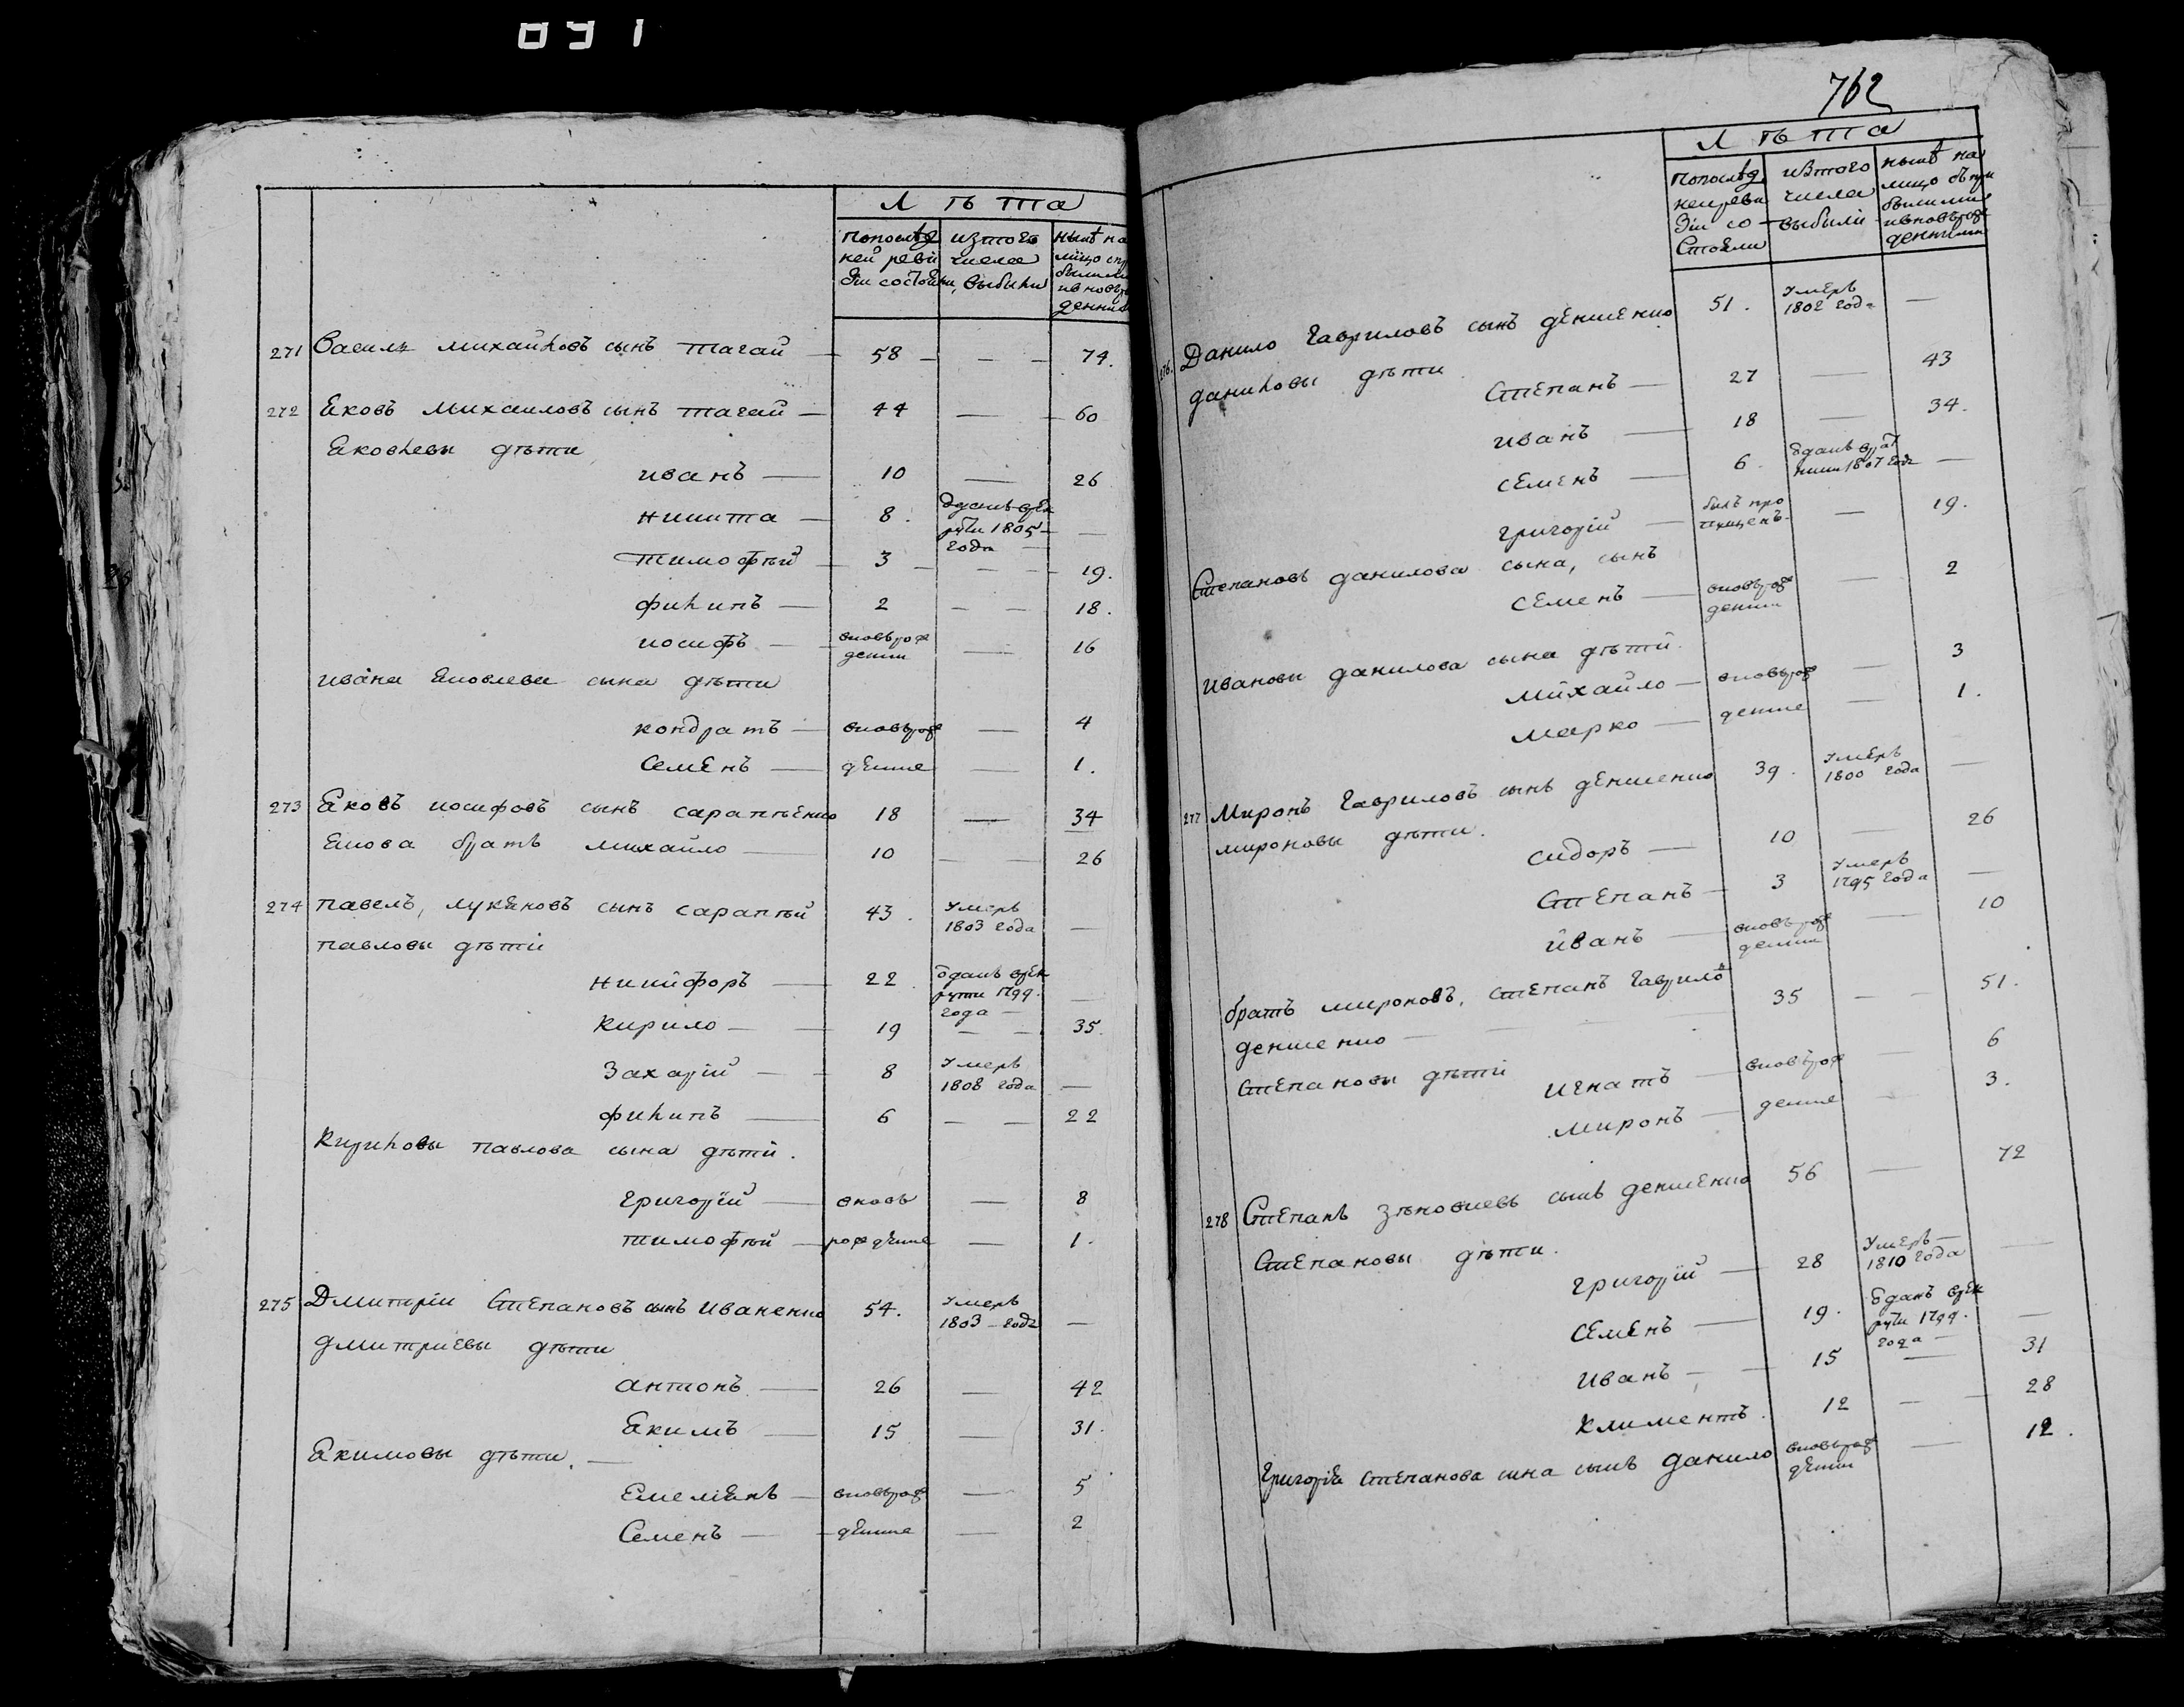 891
Лѣта
попослѣд изтого нынѣ на
ней реви числа лицо спри
зіи состояли, выбыли былыми
ивновьро
денными
271 Василь михайловъ сынъ тагай — 58 — — — 74.
272 Яковъ михаиловъ сынъ тагай — 44 — 60
Яковлевы дѣти
иванъ — 10 — 26
никита — 8. Зданъ врек
рути 1805 —
года —
тимофѣй — 3 — — — 19.
филипъ — 2 — — 18.
иосифъ — вновьрож
денни — 16
ивана Яковлева сына дѣти
кондратъ — вновьрож — 4
Семенъ —денние — 1.
273 Яковъ иосифовъ сынъ сарапѣенко 18 — 34
Якова братъ михайло — 10 — — 26
274 павелъ, лукяновъ сынъ сарапѣй 43. Умеръ
1803 года —
павловы дѣти
никифоръ — 22. ѿданъ врек
рути 1799.
года — —
кирило — — 19 — — 35.
Захарій — — 8 Умеръ
1808 года —
филипъ — 6 — — 22
Кириловы павлова сына дѣти.
григорїй — вновь — 8
тимофѣй — рожденние — 1.
275 Дмитріи Степановъ сынъ иваненко 54. Умеръ
1803 — года —
дмитриевы дѣти
антонъ — 26 — 42
Якимъ — 15 — 31.
Якимовы дѣти. —
Емеліянъ — вновьрож — 5
Семенъ — — денние — 2
762
Лѣта
попослѣд изтого нынѣ на
ней реви числа лицо съпри
зіи со — выбыли былыми
стояли ивновьрож
денными
276. Данило Гавриловъ сынъ денисенко 51. Умеръ
1802 года —
даниловы дѣти
Степанъ — 27 — 43
иванъ — 18 — 34.
семенъ — 6. ѿданъ врат
ники 1807 года —
григорій — былъ про
пущенъ — 19.
Степановъ данилова сына, сынъ
семенъ — вновьрож
денни — 2
ивановы данилова сына дѣти.
михайло — вновьрож — 3
марко — денние — 1.
277 Миронъ Гавриловъ сынъ денисенко 39. Умеръ
1800 года —
мироновы дѣти.
сидоръ — 10 26
Степанъ — 3 Умеръ
1795 года —
иванъ — вновьрож
денни — 10
братъ мироновъ, степанъ Гаврило
денисенко — 35 — — 51.
Степановы дѣти
игнатъ — вновьрож — 6
миронъ — денние — 3.
278 Степанъ Зѣновиевъ сынъ денисенко 56 — 72
Степановы дѣти.
григорїй — 28 Умеръ —
1810 года —
семенъ — 19. ѿданъ врек
рути 1799.
года — —
иванъ — — 15 — 31
климентъ. 12 — — 28
григорія степанова сина сынъ данило вновьрож
денни — 12.